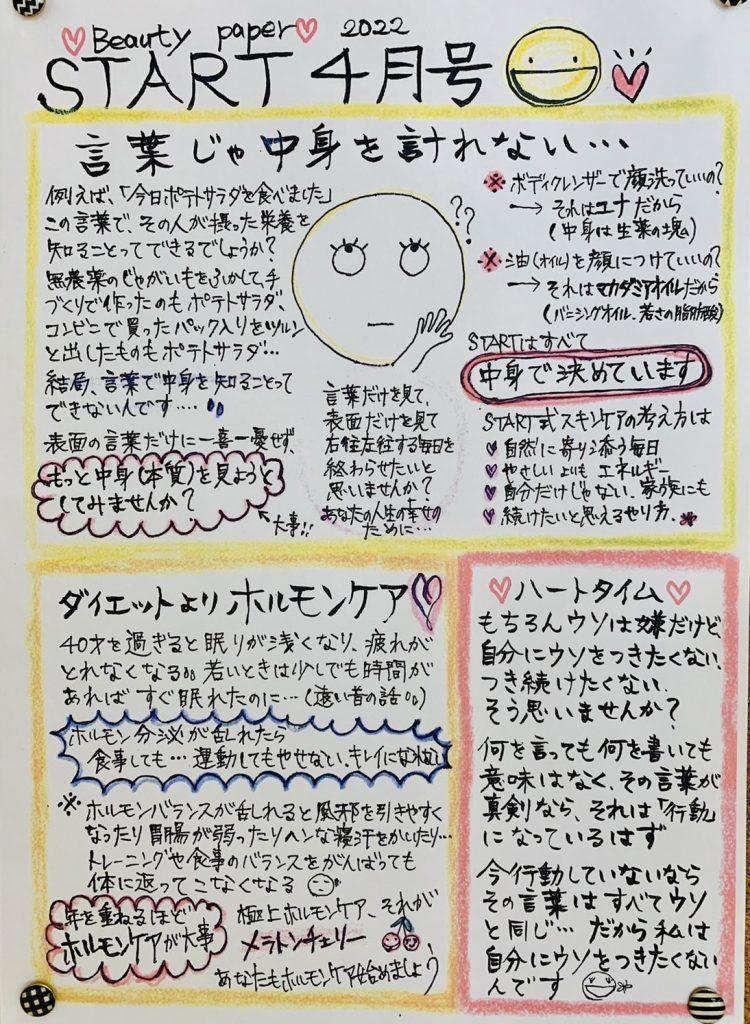 Beauty paper 2022
START 4月号
言葉じゃ中身を計れない…
例えば、「今日ポテトサラダを食べました」
この言葉で、その人が摂った栄養を
知ることってできるでしょうか?
無農薬のじゃがいもをふかして、手
づくりで作ったのもポテトサラダ、
コンビニで買ったパック入りをツルン
と出したものもポテトサラダ…
結局、言葉で中身を知ることって
できないんです….
表面の言葉だけに一喜一憂せず、
もっと中身(本質)を見ようと
してみませんか?
大事!!
??
言葉だけを見て、
表面だけを見て
右往左往する毎日を
終わらせたいと
思いませんか?
あなたの人生の幸せの
ために…
※ボディクレンザーで顔洗っていいの?
→ それはユナだから
(中身は生薬の塊)
※油(オイル)を顔につけていいの?
→ それはマカダミアオイルだから
(バニシングオイル、若さの脂肪酸)
STARTはすべて
中身で決めています
START式スキンケアの考え方は
自然に寄り添う毎日
やさしいよりも エネルギー
自分だけじゃない、家族にも
続けたいと思えるやり方。
ダイエットよりホルモンケア
40才を過ぎると眠りが浅くなり、疲れが
とれなくなる。若いときは少しでも時間が
あればすぐ眠れたのに…(遠い昔の話)
ホルモン分泌が乱れたら
食事しても…運動してもやせない、キレイになれない
※ホルモンバランスが乱れると風邪を引きやすく
なったり胃腸が弱ったりヘンな寝汗をかいたり…
トレーニングや食事のバランスをがんばっても
体に返ってこなくなる
年を重ねるほど
ホルモンケアが大事
極上ホルモンケア、それが
メラトンチェリー
あなたもホルモンケア始めましょう
ハートタイム
もちろんウソは嫌だけど、
自分にウソをつきたくない、
つき続けたくない、
そう思いませんか?
何を言っても何を書いても
意味はなく、その言葉が
真剣なら、それは「行動」
になっているはず
今行動していないなら
その言葉はすべてウソ
と同じ…だから私は
自分にウソをつきたくない
んです